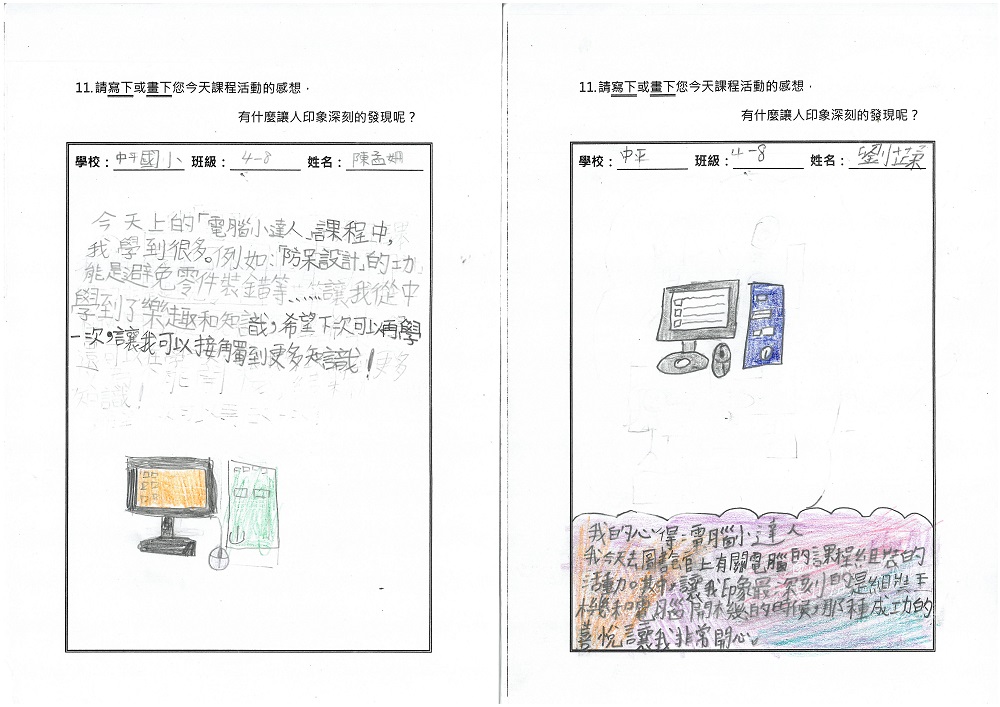 11.請寫下或畫下您今天課程活動的感想，
有什麼讓人印象深刻的發現呢？
學校：中平國小 班級：4-8 姓名：陳孟姍
今天上的「電腦小達人」課程中，
我學到很多。例如：「防呆設計」的功
能是避免零件裝錯等……讓我從中
學到了樂趣和知識，希望下次可以再學
一次，讓我可以接觸到更多知識！
11.請寫下或畫下您今天課程活動的感想，
有什麼讓人印象深刻的發現呢？
學校：中平 班級：4-8 姓名：劉
我的心得：電腦小達人
我今天去圖書館上有關電腦的課程組裝的
活動。其中，讓我印象最深刻的是組裝主
機和電腦開機的時候，那種成功的
喜悅讓我非常開心。